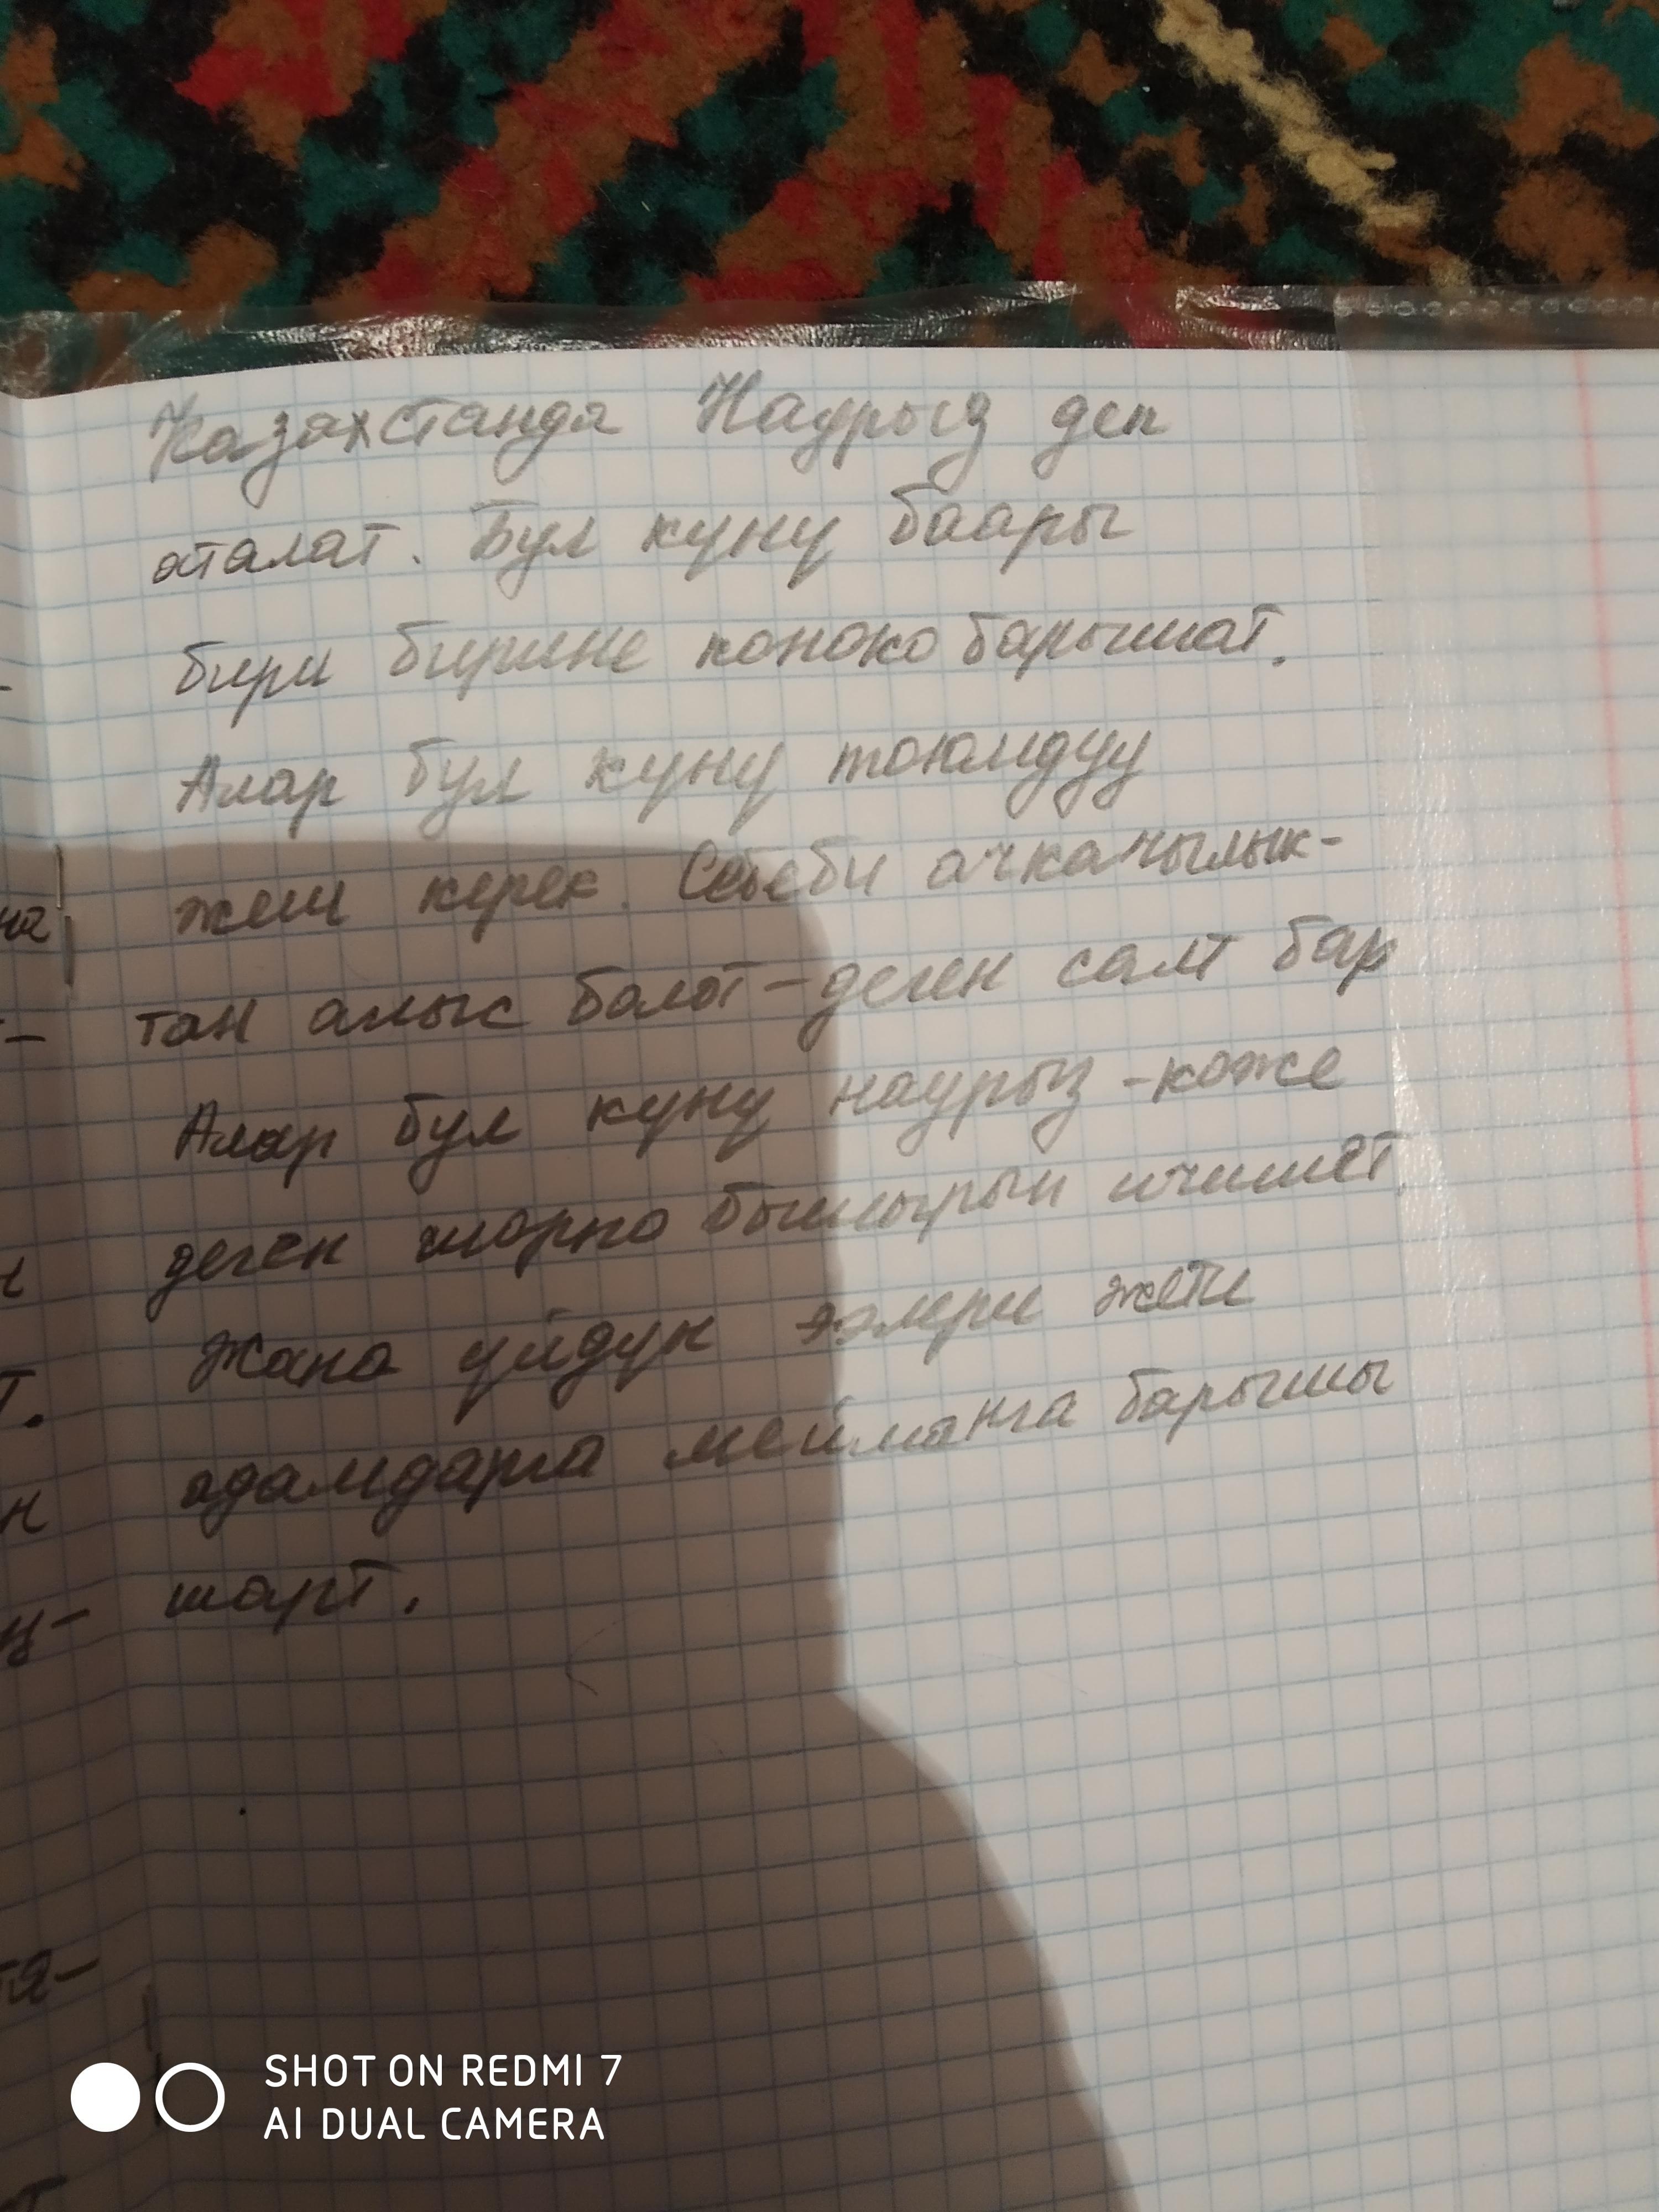 Казахстанда Наурыз деп
аталат. Бул куну баары
бири бирине конокко барышат.
Алар бул куну тоюмдуу
жеш керек. Себеби ачкачылык-
тан алыс болот - деген салт бар
Алар бул куну наурыз - коже
деген шорпо бышырып ичишет.
Жана уйдун ээлери жети
адамдарга мейманга барышы
шарт.
SHOT ON REDMI 7
AI DUAL CAMERA